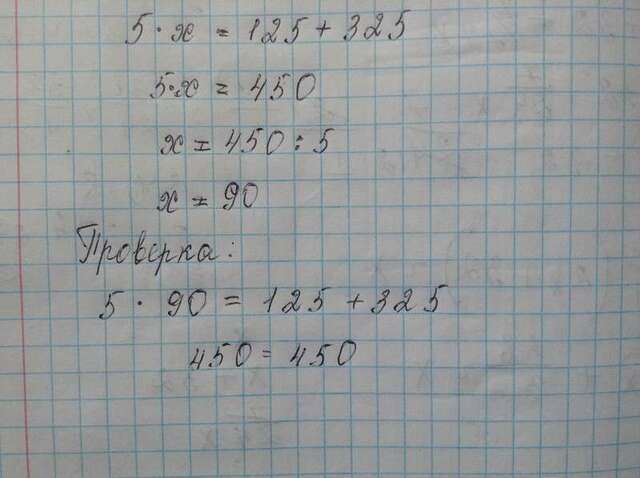 5 · x = 125 + 325
5·x = 450
x = 450 : 5
x = 90
Проверка:
5 · 90 = 125 + 325
450 = 450